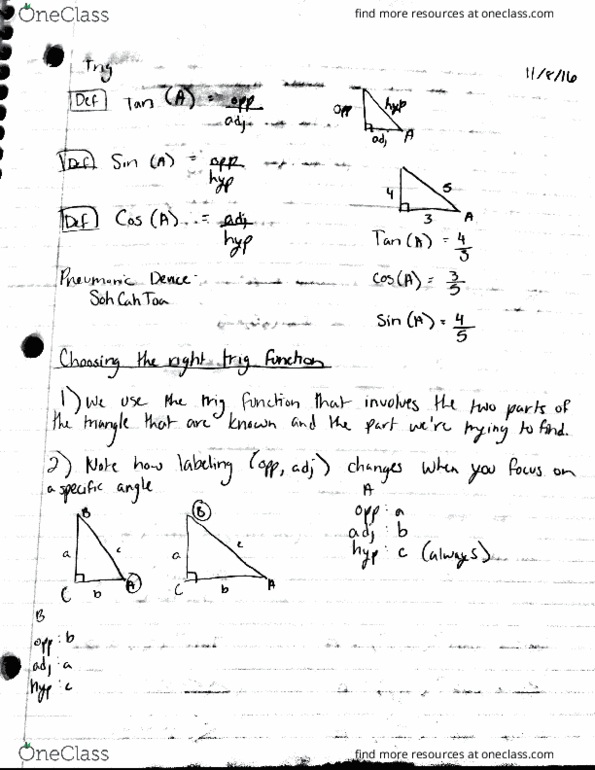 OneClass
find more resources at oneclass.com
Trig
11/8/16
Def Tan (A) = opp/adj
opp hyp adj A
Def Sin (A) = opp/hyp
4 5 3 A
Def Cos (A) = adj/hyp
Tan(A) = 4/3
Pneumonic Device:
Soh Cah Toa
Cos(A) = 3/5
Sin(A) = 4/5
Choosing the right trig function
1) We use the trig function that involves the two parts of
the triangle that are known and the part we're trying to find.
2) Note how labeling (opp, adj) changes when you focus on
a specific angle
B a c C b A
B a c C b A
A
opp: a
adj: b
hyp: c (always)
B
opp: b
adj: a
hyp: c
OneClass
find more resources at oneclass.com